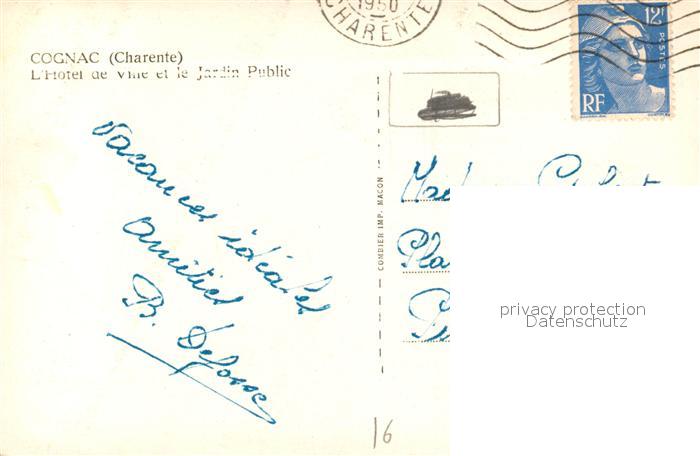 1950
CHARENTE
12F
POSTES
RF
COGNAC (Charente)
L'Hotel de Ville et le Jardin Public
Vacances idéales
amitiés
B.
COMBIER IMP. MACON
Pla
privacy protection
Datenschutz
16